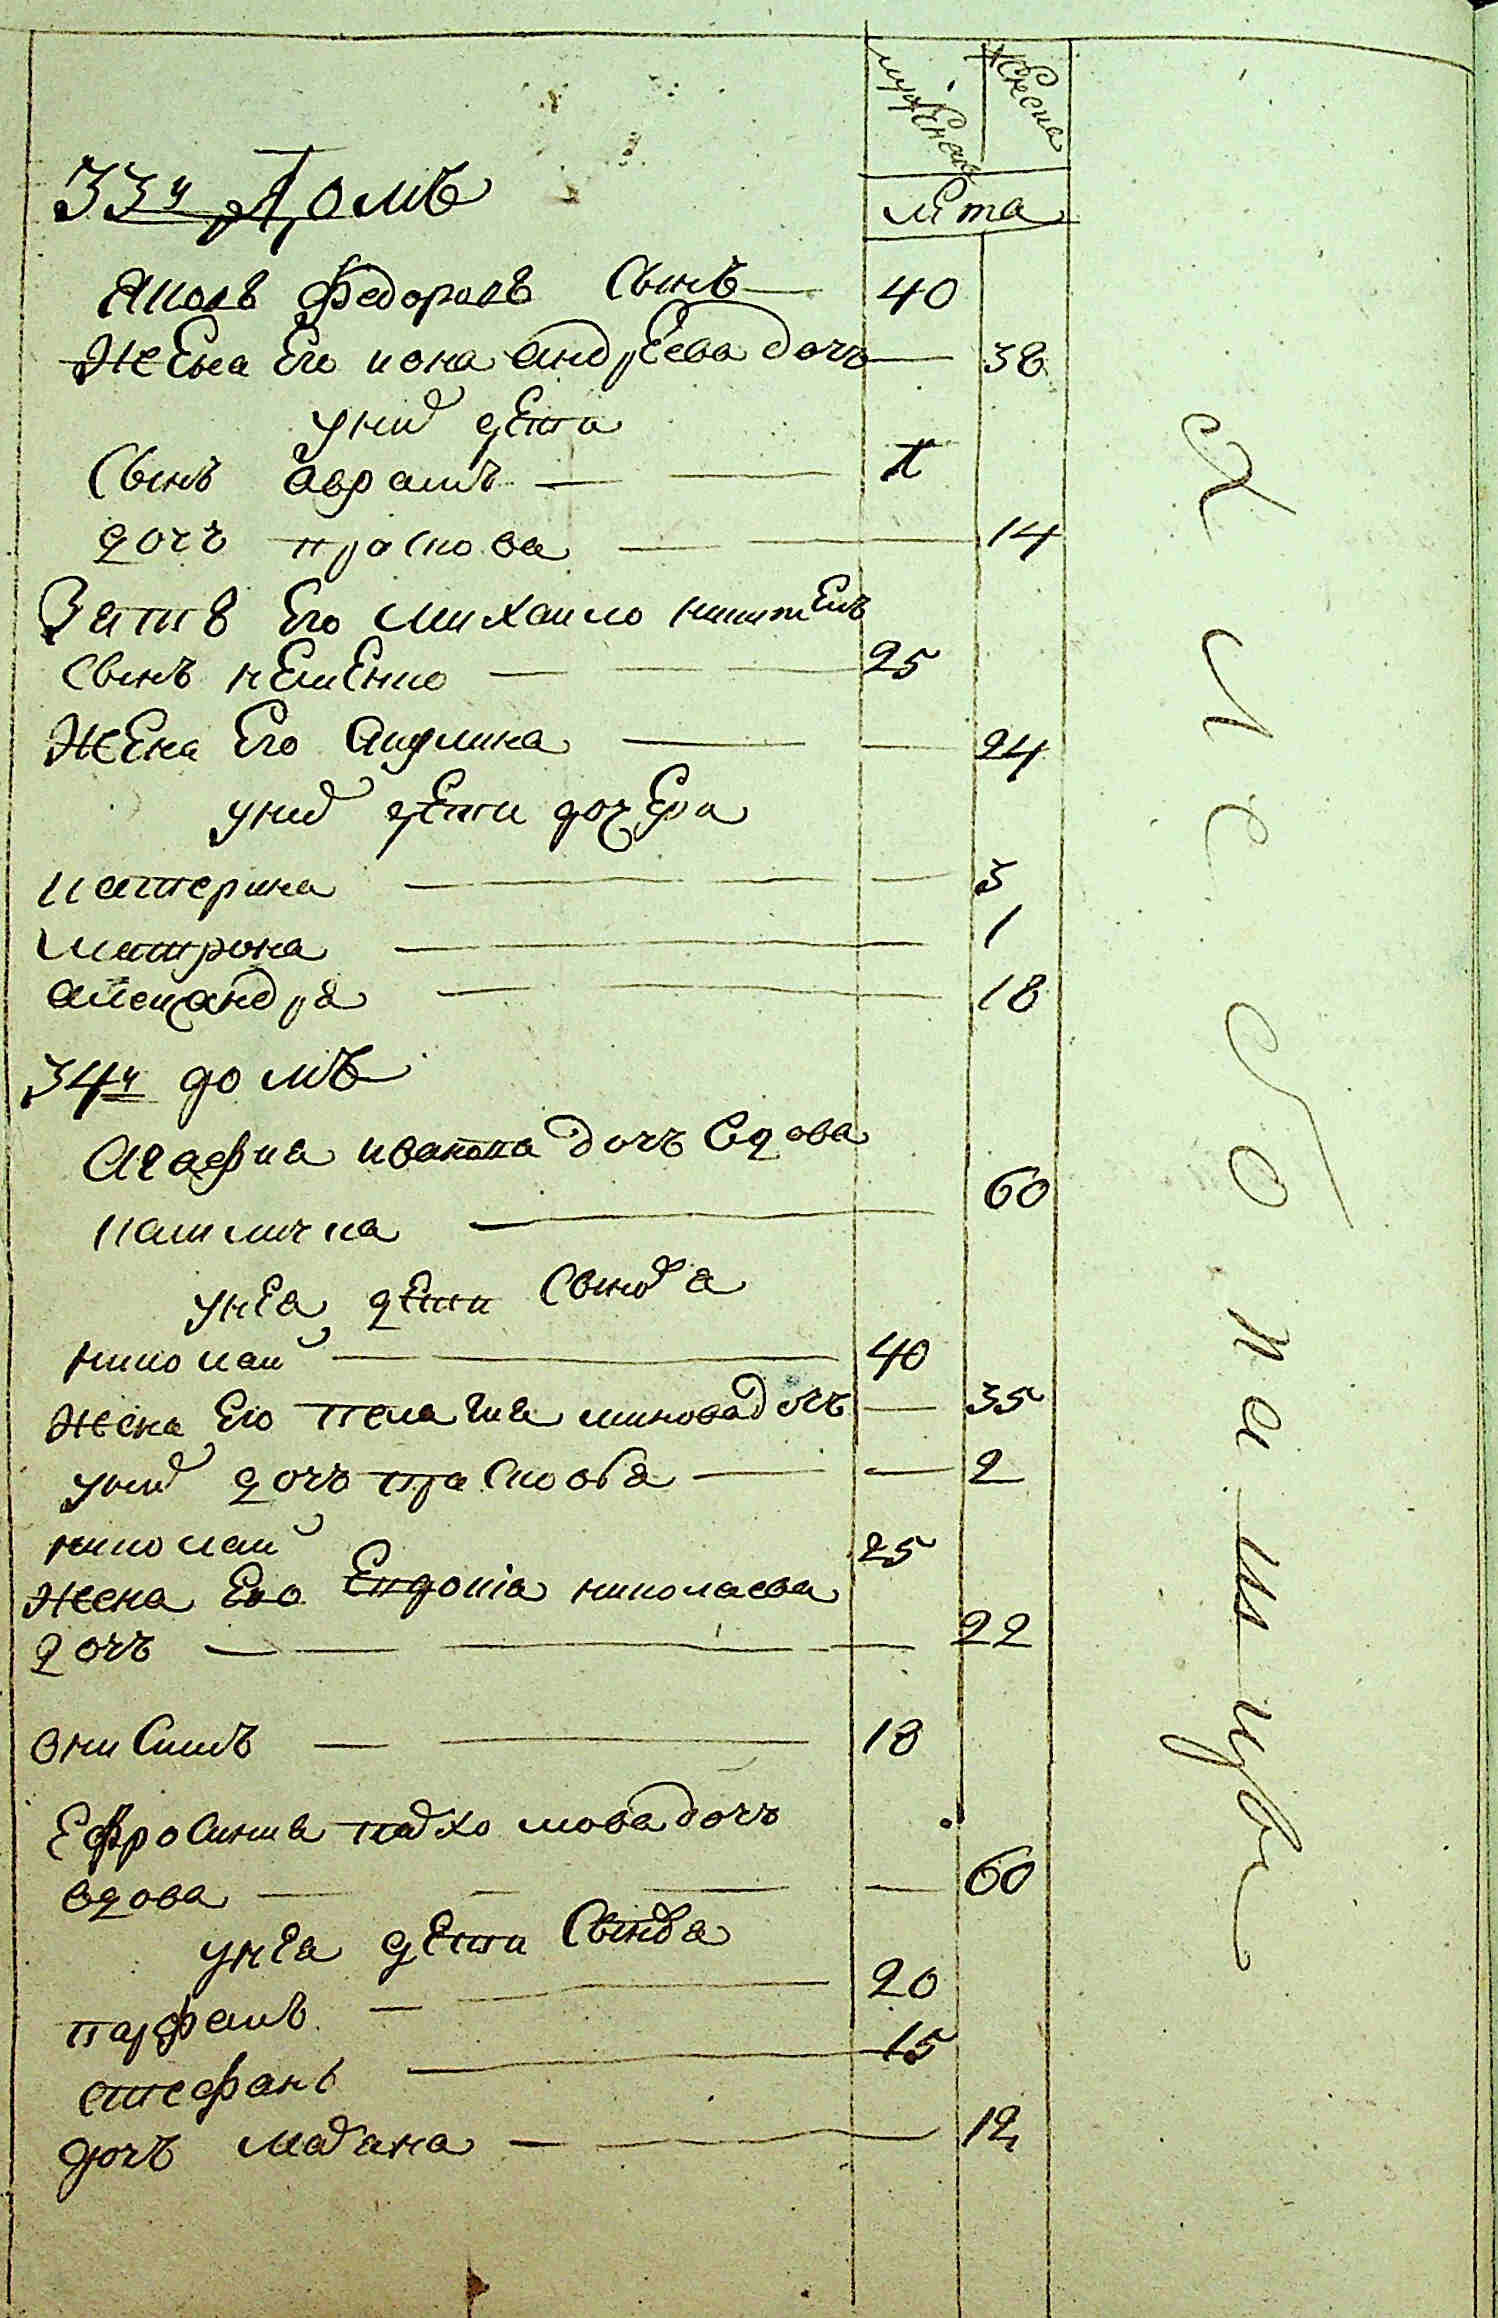 мужеска женска
лета
33й Домъ
Яковъ Федоровъ Сынъ — 40
Жена Его иона андреева дочъ — 38
у нихъ дети
Сынъ аврамъ — 1
дочъ праскова — 14
Зять Его Михаило никитенъ
Сынъ немЕнко — 25
Жена Его Акулина — 24
у нихъ дети дочери
катерина — 3
матрона — 1
александра — 18
34й домъ
Агафиа иванова дочъ вдова
калмичка — 60
у нЕа дети Сынова
николаи — 40
жена Его Пелагиа минова дочъ — 35
у нихъ дочъ праскова — 2
николаи 25
жена Его Евдокіа николаева
дочъ — 22
онисимъ — 18
Ефросиниа пахомова дочъ
вдова — 60
у нЕа дети Сынова
парфенъ — 20
стефанъ — 15
дочъ мариана — 12